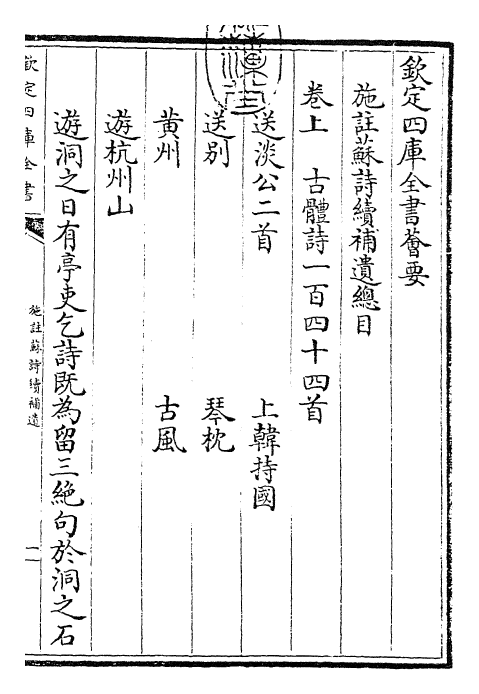 欽定四庫全書薈要
施註蘇詩續補遺總目
卷上　古體詩一百四十四首
送淡公二首　上韓持國
送別　琴枕
黄州　古風
遊杭州山
遊洞之日有亭吏乞詩既為留三絶句於洞之石
欽定四庫全書
施註蘇詩續補遺
一